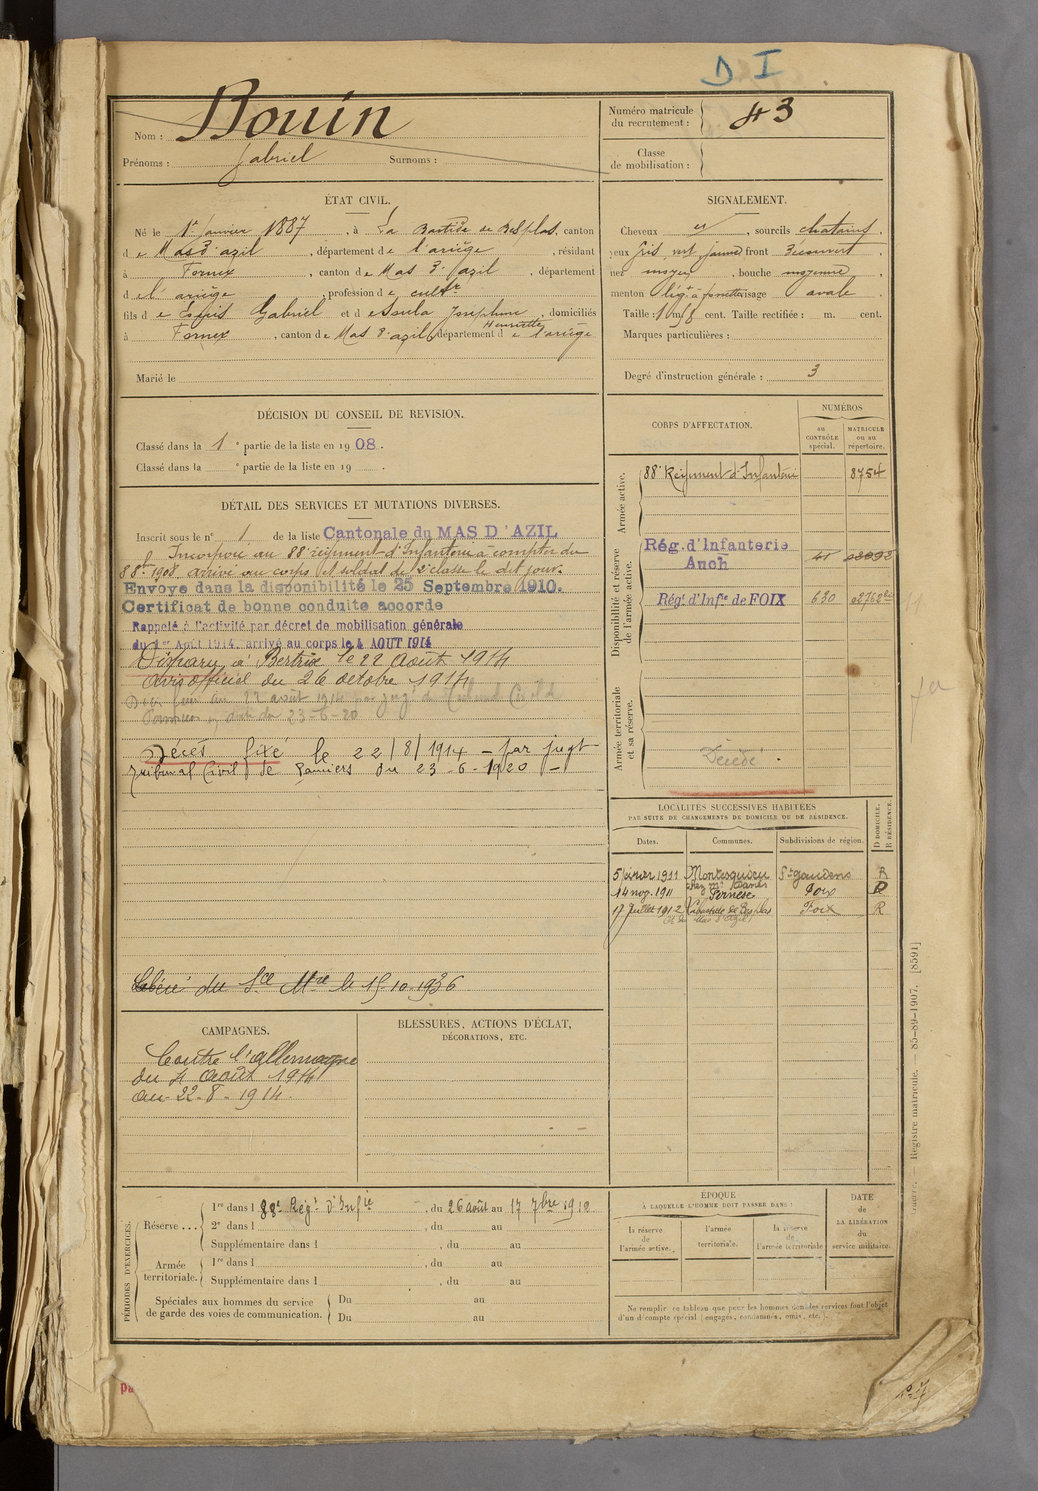 D I
Nom : Bouin
Prénoms : Gabriel Surnoms :
Numéro matricule du recrutement : 43
Classe de mobilisation :
ÉTAT CIVIL.
Né le 1er Janvier 1887, à La Bastide de Besplas, canton
de Mas d'azil, département de l'ariège, résidant
à Fornex, canton de Mas d'azil, département
de l'ariège, profession de cultr
fils de Louis Gabriel et de Soula Joséphine Henriette, domiciliés
à Fornex, canton de Mas d'azil, département de l'ariège
Marié le
SIGNALEMENT.
Cheveux et, sourcils chatains,
yeux gris vert jaune front découvert,
nez moyen, bouche moyenne,
menton légt à fossette visage ovale.
Taille : 1 m. 58 cent. Taille rectifiée : m. cent.
Marques particulières :
Degré d'instruction générale : 3
DÉCISION DU CONSEIL DE REVISION.
Classé dans la 1e partie de la liste en 1908.
Classé dans la e partie de la liste en 19 .
DÉTAIL DES SERVICES ET MUTATIONS DIVERSES.
Inscrit sous le n° 1 de la liste Cantonale du MAS D'AZIL
Incorporé au 88e régiment d'Infanterie à compter du
8 8bre 1908, arrivé au corps et soldat de 2e classe le dit jour.
Envoyé dans la disponibilité le 25 Septembre 1910.
Certificat de bonne conduite accordé
Rappelé à l'activité par décret de mobilisation générale
du 1er Août 1914, arrivé au corps le 4 AOUT 1914
Disparu à Bertrix le 22 Août 1914
avis officiel du 26 octobre 1914
Décès fixé au 22 août 1914 par jugt du Tribunal Civil de
Pamiers en date du 23-6-20
Décès fixé le 22/8/1914 - par jugt
Tribunal Civil de Pamiers du 23-6-1920 -
Libéré du Sce Mre le 15-10-1936
CORPS D'AFFECTATION.
NUMÉROS
au CONTRÔLE spécial.
MATRICULE ou au répertoire.
Armée active.
88e Régiment d'Infanterie 8754
Disponibilité et réserve de l'armée active.
Rég. d'Infanterie
Auch 41
Régt d'Infie de FOIX 630
Armée territoriale et sa réserve.
Décédé.
LOCALITÉS SUCCESSIVES HABITÉES
PAR SUITE DE CHANGEMENTS DE DOMICILE OU DE RÉSIDENCE.
Dates. Communes. Subdivisions de région. D DOMICILE. R RÉSIDENCE.
5 février 1911 Montesquieu St Gaudens R
14 nov. 1911 Fornex Foix D
17 Juillet 1912 Labastide de Besplas Foix R
CAMPAGNES.
Contre l'allemagne
du 4 Août 1914
au 22-8-1914.
BLESSURES, ACTIONS D'ÉCLAT,
DÉCORATIONS, ETC.
PÉRIODES D'EXERCICES.
Réserve... 1re dans l 88e Régt d'Infie, du 26 août au 17 7bre 1912
2e dans l , du au
Supplémentaire dans l , du au
Armée territoriale. 1re dans l , du au
Supplémentaire dans l , du au
Spéciales aux hommes du service de garde des voies de communication. Du au
Du au
ÉPOQUE
À LAQUELLE L'HOMME DOIT PASSER DANS :
la réserve de l'armée active.
l'armée territoriale.
la réserve de l'armée territoriale
DATE de LA LIBÉRATION du service militaire.
Ne remplir ce tableau que pour les hommes dont les services font l'objet
d'un décompte spécial (engagés, condamnés, omis, etc.).
Registre matricule. — 85-89-1907. [8591]